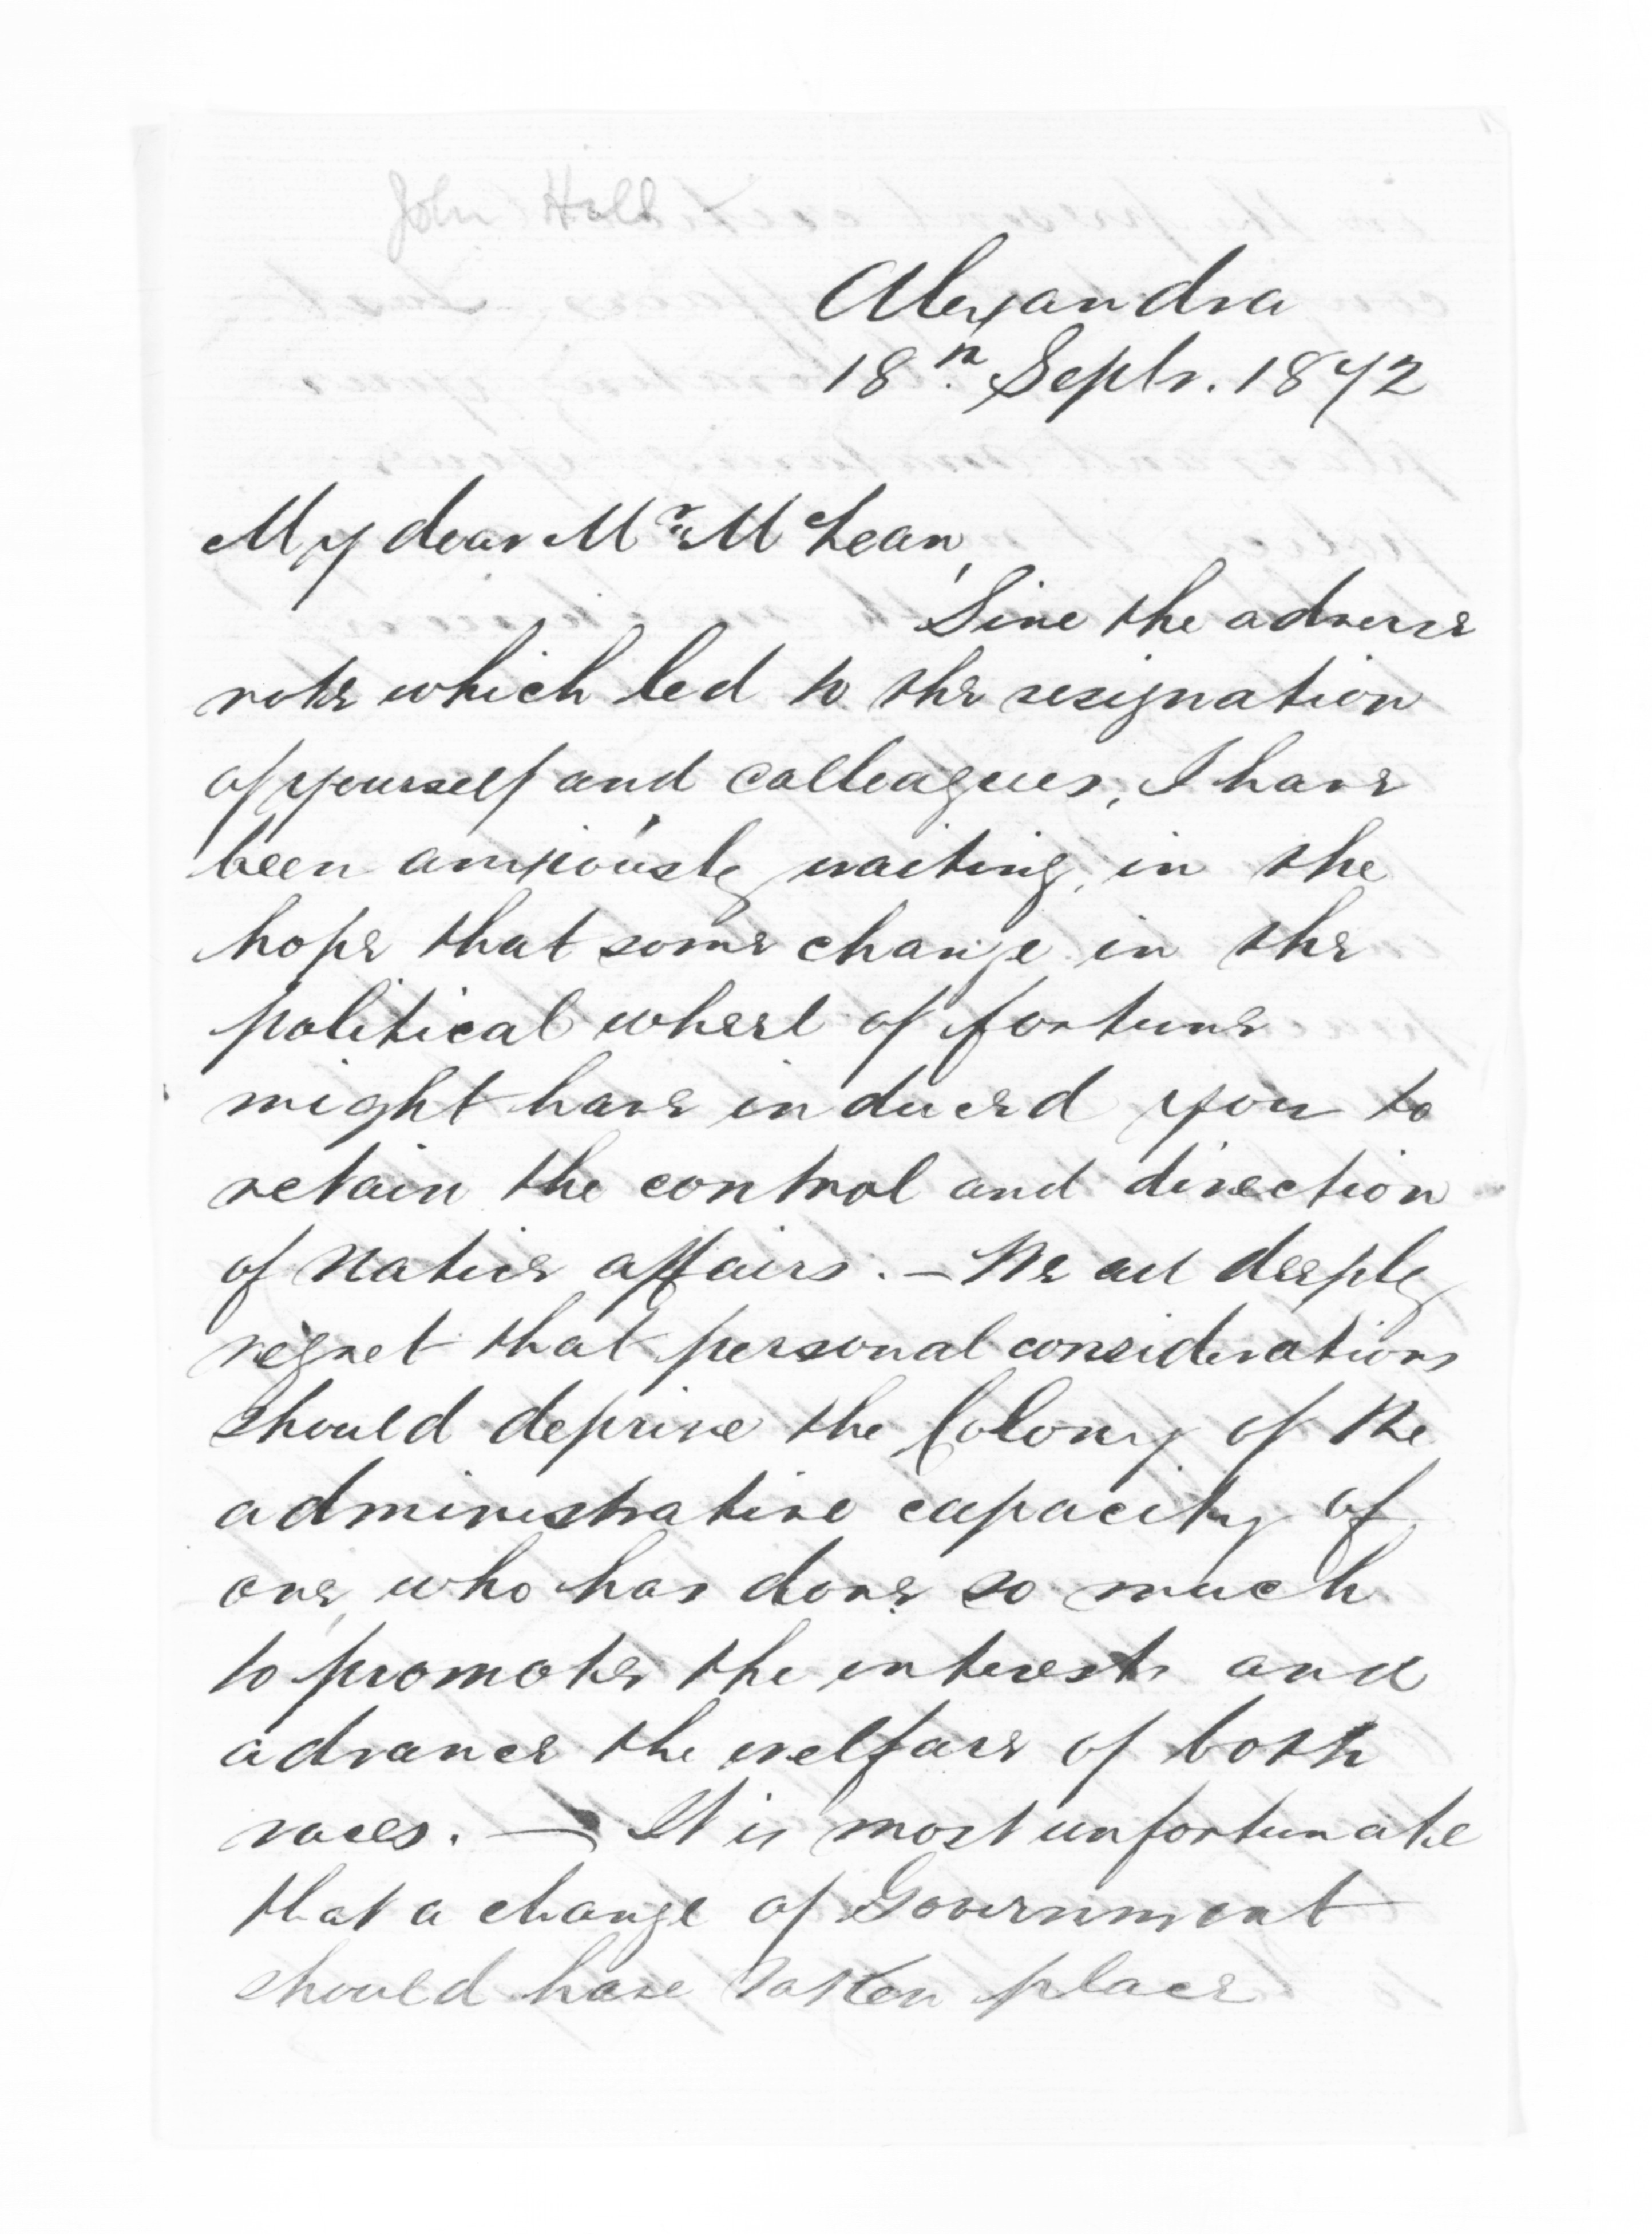 John Hall
Alexandra
18th Septr. 1872
My dear Mr. McLean,
Since the adverse
vote which led to the resignation
of yourself and colleagues, I have
been anxiously waiting, in the
hope that some change in the
political wheel of fortune
might have induced you to
retain the control and direction
of Native affairs. — We all deeply
regret that personal considerations
should deprive the Colony of the
administrative capacity of
one, who has done so much
to promote the interests and
advance the welfare of both
races. — It is most unfortunate
that a change of Government
should have taken place